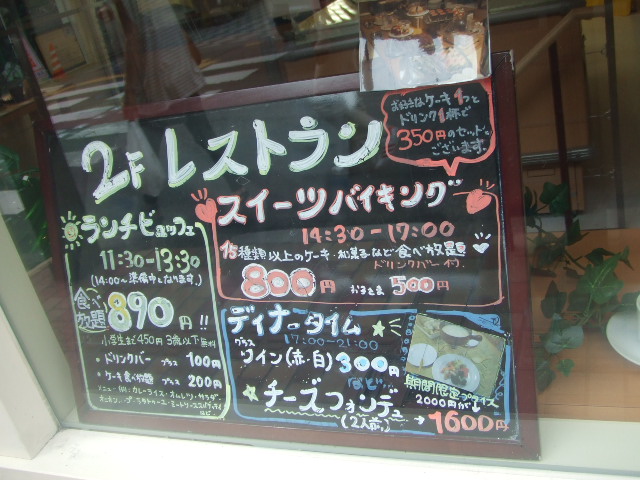 2F レストラン
お好きなケーキ1つと
ドリンク1杯で
350円のセットも
ございます。
スイーツバイキング
14:30-17:00
15種類以上のケーキ・和菓子など食べ放題
ドリンクバー付
800円 お子さま 500円
ランチビュッフェ
11:30-13:30
(14:00~準備中となります。)
食べ放題 890円!!
小学生まで450円 3歳以下無料
・ドリンクバー プラス 100円
・ケーキ食べ放題 プラス 200円
メニュー カレーライス・オムレツ・サラダ
など
ディナータイム
17:00-21:00
プラス
ワイン(赤・白) 300円
など
チーズフォンデュ
(2人前)
期間限定プライス
2000円が
→1600円